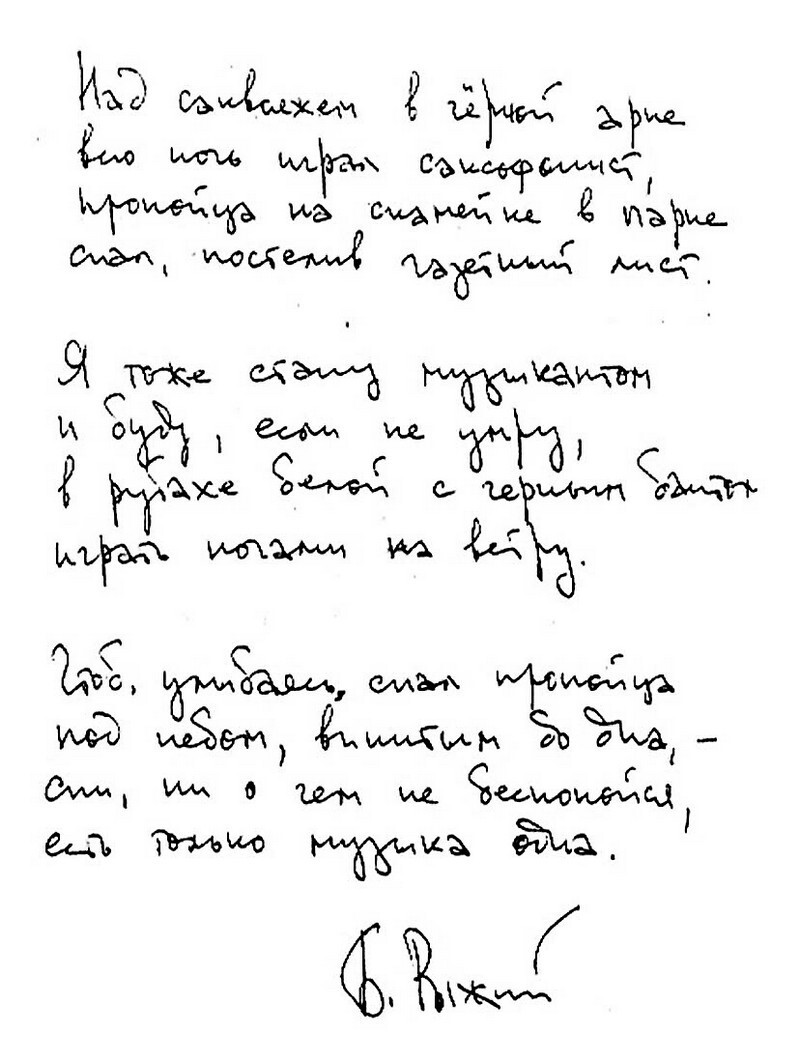 Над саквояжем в чёрной арке
всю ночь играл саксофонист,
пропойца на скамейке в парке
спал, постелив газетный лист.
Я тоже стану музыкантом
и буду, если не умру,
в рубахе белой с черным бантом
играть ночами на ветру.
Чтоб, улыбаясь, спал пропойца
под небом, выпитым до дна, –
спи, ни о чем не беспокойся,
есть только музыка одна.
Б. Рыжий